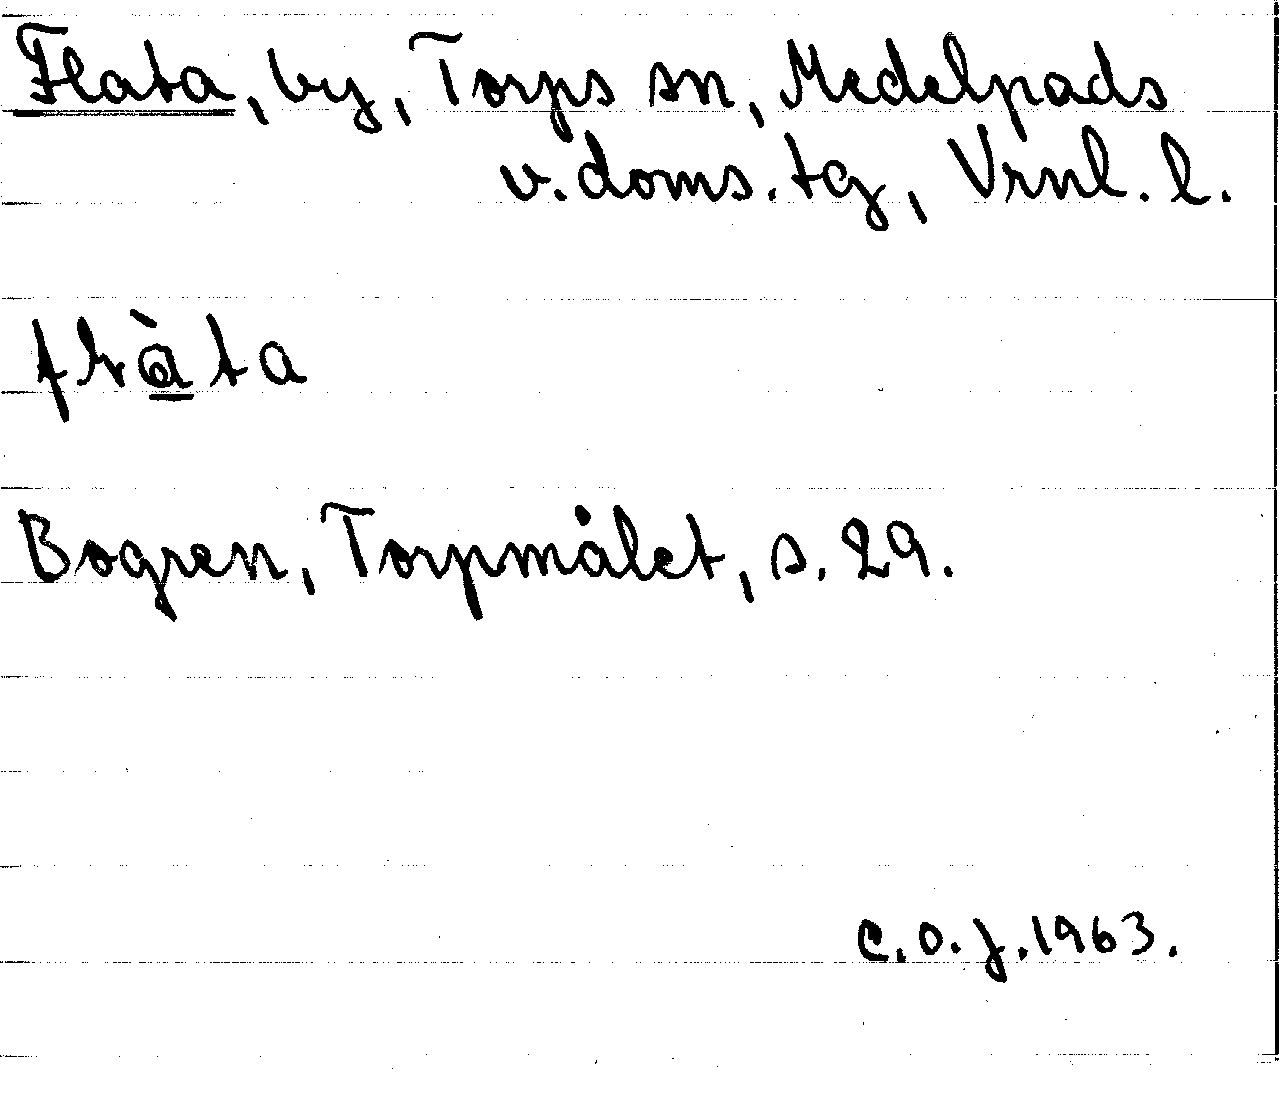 Flata, by, Torps sn, Medelpads
v. doms. tg, Vrnl. l.
flàta
Bogren, Torpmålet, s. 29.
C.O.J. 1963.